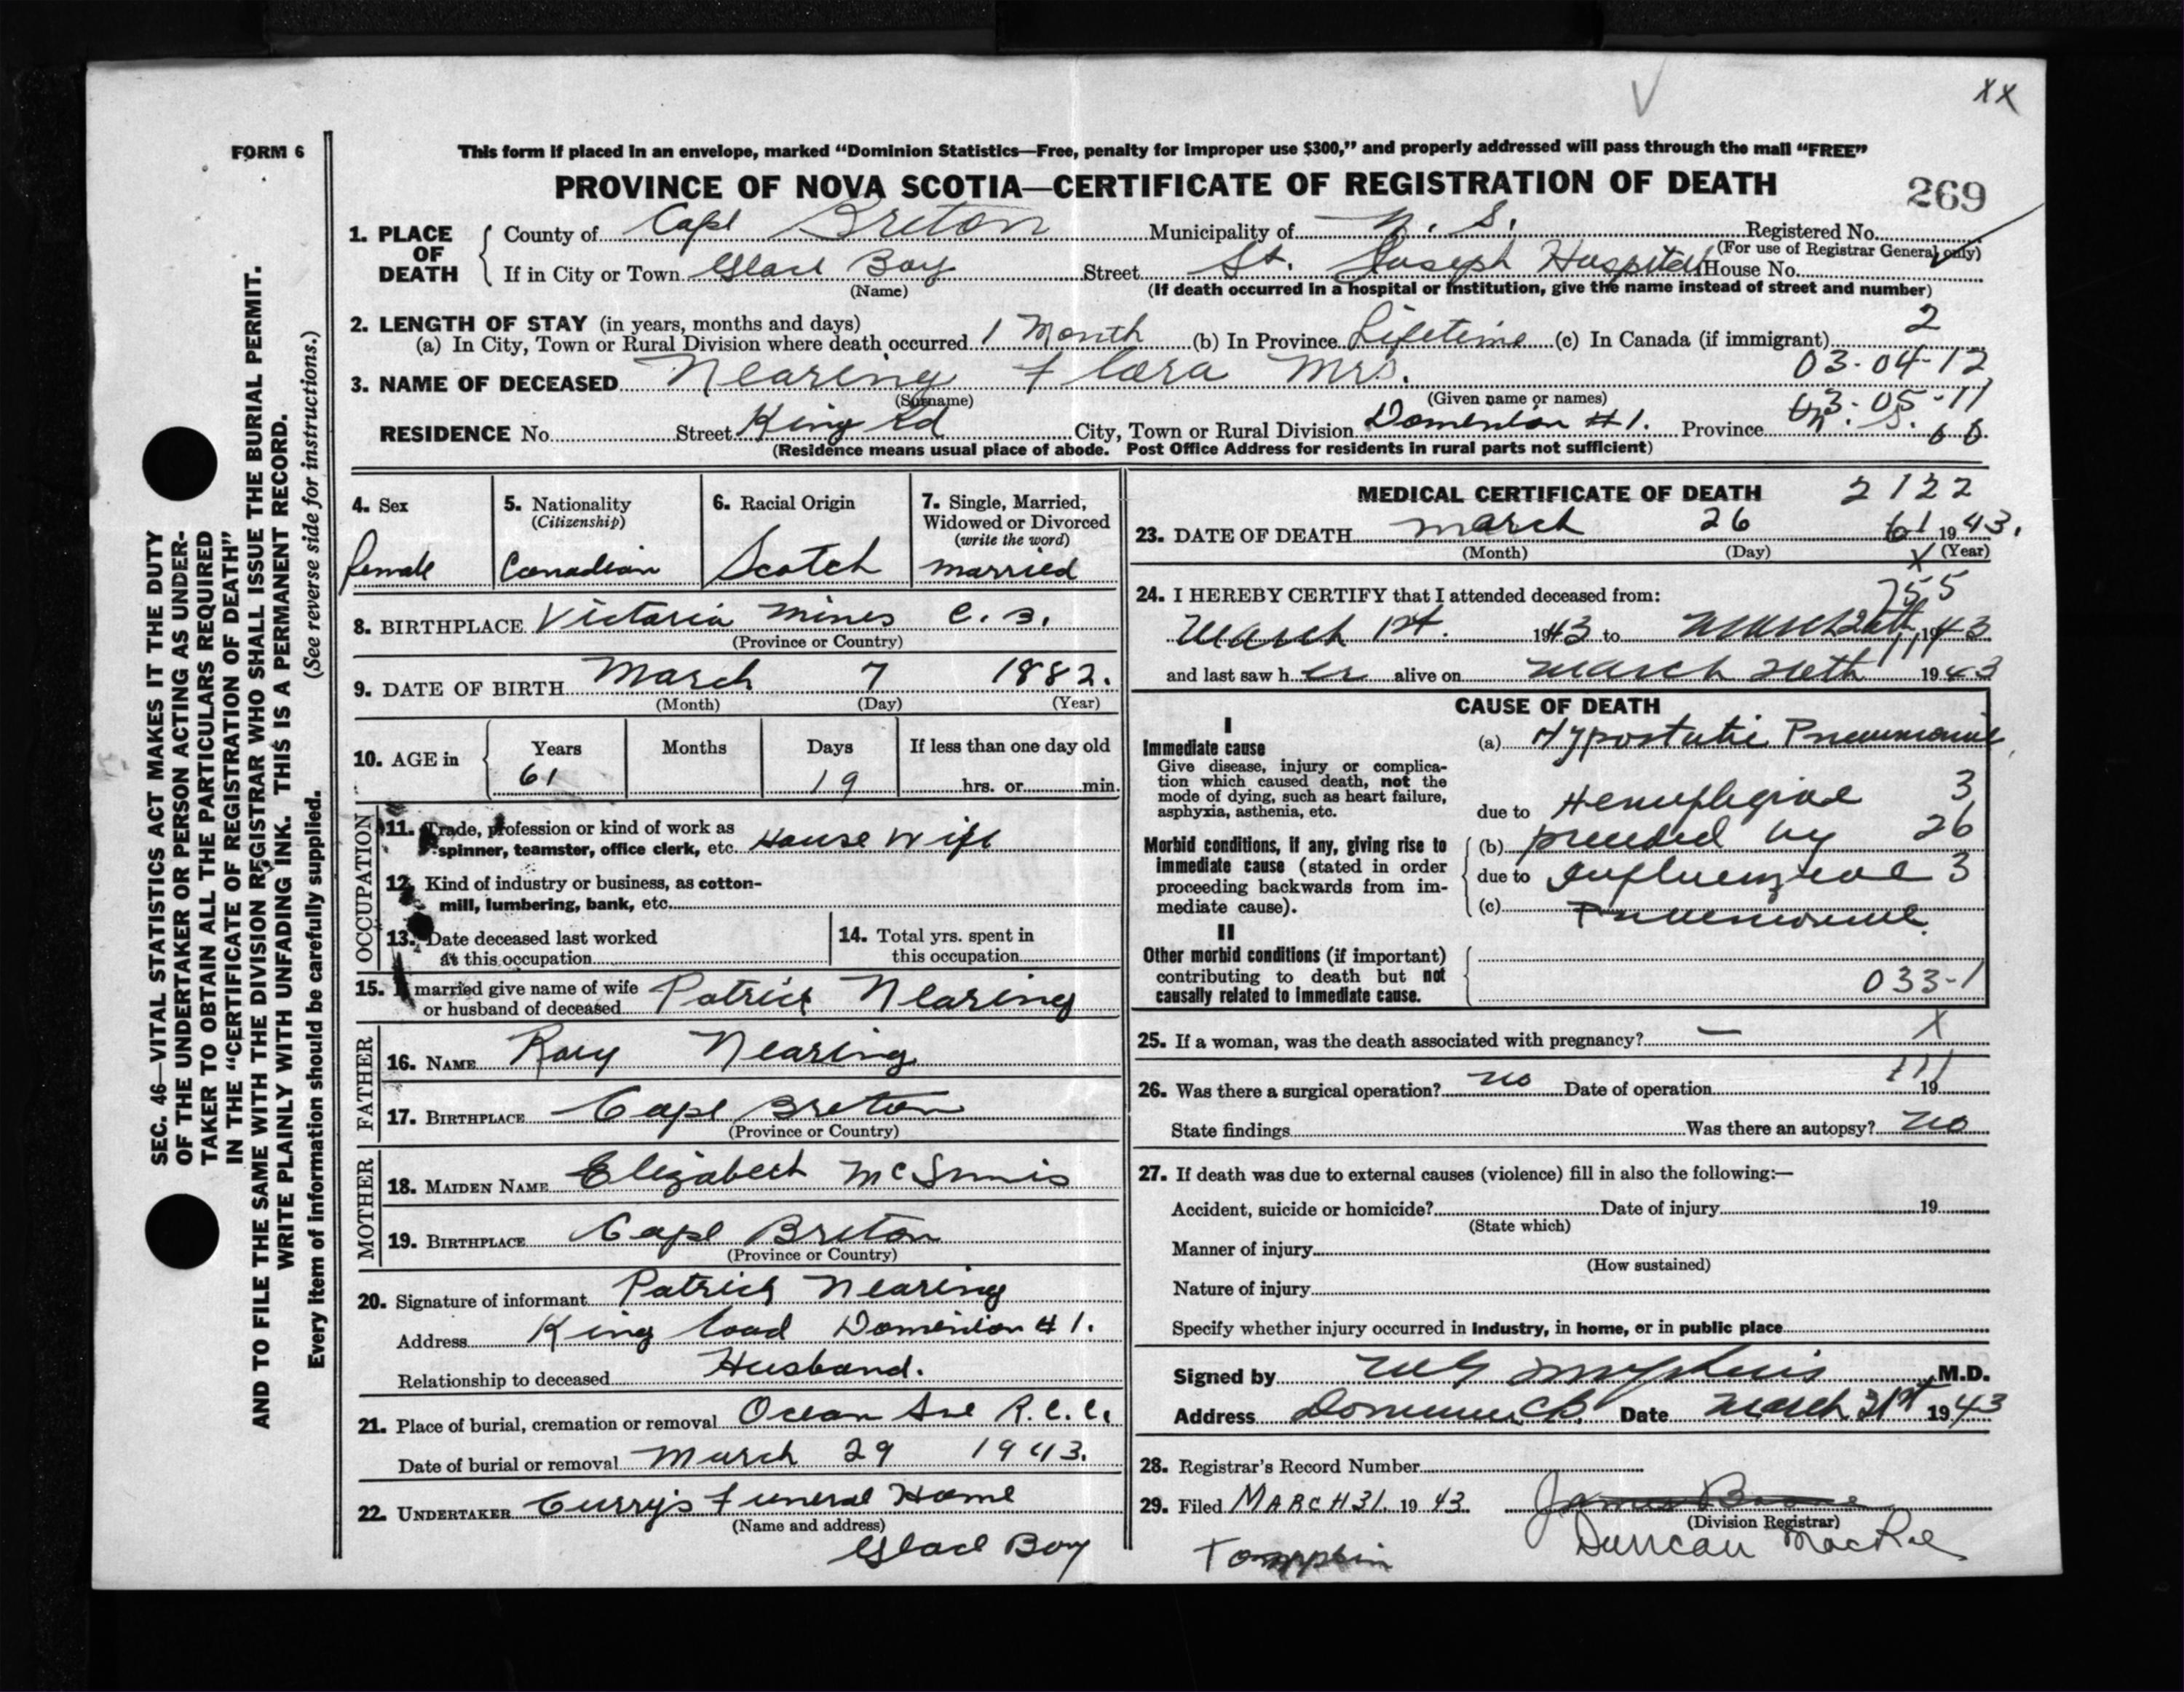 XX
FORM 6
This form if placed in an envelope, marked “Dominion Statistics—Free, penalty for improper use $300,” and properly addressed will pass through the mail “FREE”
PROVINCE OF NOVA SCOTIA—CERTIFICATE OF REGISTRATION OF DEATH
269
1. PLACE OF DEATH
County of Cape Breton Municipality of N. S. Registered No.
(For use of Registrar General only)
If in City or Town Glace Bay Street St. Joseph Hospital House No.
(Name) (If death occurred in a hospital or institution, give the name instead of street and number)
2. LENGTH OF STAY (in years, months and days) 2
(a) In City, Town or Rural Division where death occurred 1 Month (b) In Province Lifetime (c) In Canada (if immigrant)
03-04-12
3. NAME OF DECEASED Nearing Flora Mrs.
(Surname) (Given name or names)
03-05-11
RESIDENCE No. Street King Rd City, Town or Rural Division Dominion #1. Province N. S. 6 6
(Residence means usual place of abode. Post Office Address for residents in rural parts not sufficient)
4. Sex
female
5. Nationality
(Citizenship)
Canadian
6. Racial Origin
Scotch
7. Single, Married,
Widowed or Divorced
(write the word)
married
8. BIRTHPLACE Victoria Mines C. B.
(Province or Country)
9. DATE OF BIRTH March 7 1882.
(Month) (Day) (Year)
10. AGE in
Years Months Days If less than one day old
61 19 hrs. or min.
OCCUPATION
11. Trade, profession or kind of work as
spinner, teamster, office clerk, etc. House Wife
12. Kind of industry or business, as cotton-
mill, lumbering, bank, etc.
13. Date deceased last worked
at this occupation
14. Total yrs. spent in
this occupation
15. If married give name of wife
or husband of deceased Patrick Nearing
FATHER
16. NAME Rory Nearing
17. BIRTHPLACE Cape Breton
(Province or Country)
MOTHER
18. MAIDEN NAME Elizabeth McInnis
19. BIRTHPLACE Cape Breton
(Province or Country)
20. Signature of informant Patrick Nearing
Address King Road Dominion #1.
Relationship to deceased Husband.
21. Place of burial, cremation or removal Ocean Ave R.C.C.
Date of burial or removal March 29 1943.
22. UNDERTAKER Curry's Funeral Home
(Name and address)
Glace Bay
MEDICAL CERTIFICATE OF DEATH 2122
23. DATE OF DEATH March 26 61 1943.
(Month) (Day) X (Year)
24. I HEREBY CERTIFY that I attended deceased from: 755
March 1st. 1943 to March 26th, 1943
and last saw her alive on March 26th 1943
CAUSE OF DEATH
I
Immediate cause
Give disease, injury or complica-
tion which caused death, not the
mode of dying, such as heart failure,
asphyxia, asthenia, etc.
Morbid conditions, if any, giving rise to
immediate cause (stated in order
proceeding backwards from im-
mediate cause).
II
Other morbid conditions (if important)
contributing to death but not
causally related to immediate cause.
(a) Hypostatic Pneumonia
due to Hemiplegia 3
(b) preceded by 26
due to Influenzal 3
(c) Pneumonia.
033-1
25. If a woman, was the death associated with pregnancy? — X
26. Was there a surgical operation? no Date of operation 19
111
State findings Was there an autopsy? no
27. If death was due to external causes (violence) fill in also the following:—
Accident, suicide or homicide? Date of injury 19
(State which)
Manner of injury
(How sustained)
Nature of injury
Specify whether injury occurred in industry, in home, or in public place
Signed by M.D.
Address Dominion, C.B. Date March 31st 1943
28. Registrar's Record Number
29. Filed MARCH 31 1943 James Boone
(Division Registrar)
Duncan MacRae
SEC. 46—VITAL STATISTICS ACT MAKES IT THE DUTY
OF THE UNDERTAKER OR PERSON ACTING AS UNDER-
TAKER TO OBTAIN ALL THE PARTICULARS REQUIRED
IN THE “CERTIFICATE OF REGISTRATION OF DEATH”
AND TO FILE THE SAME WITH THE DIVISION REGISTRAR WHO SHALL ISSUE THE BURIAL PERMIT.
WRITE PLAINLY WITH UNFADING INK. THIS IS A PERMANENT RECORD.
Every item of information should be carefully supplied. (See reverse side for instructions.)